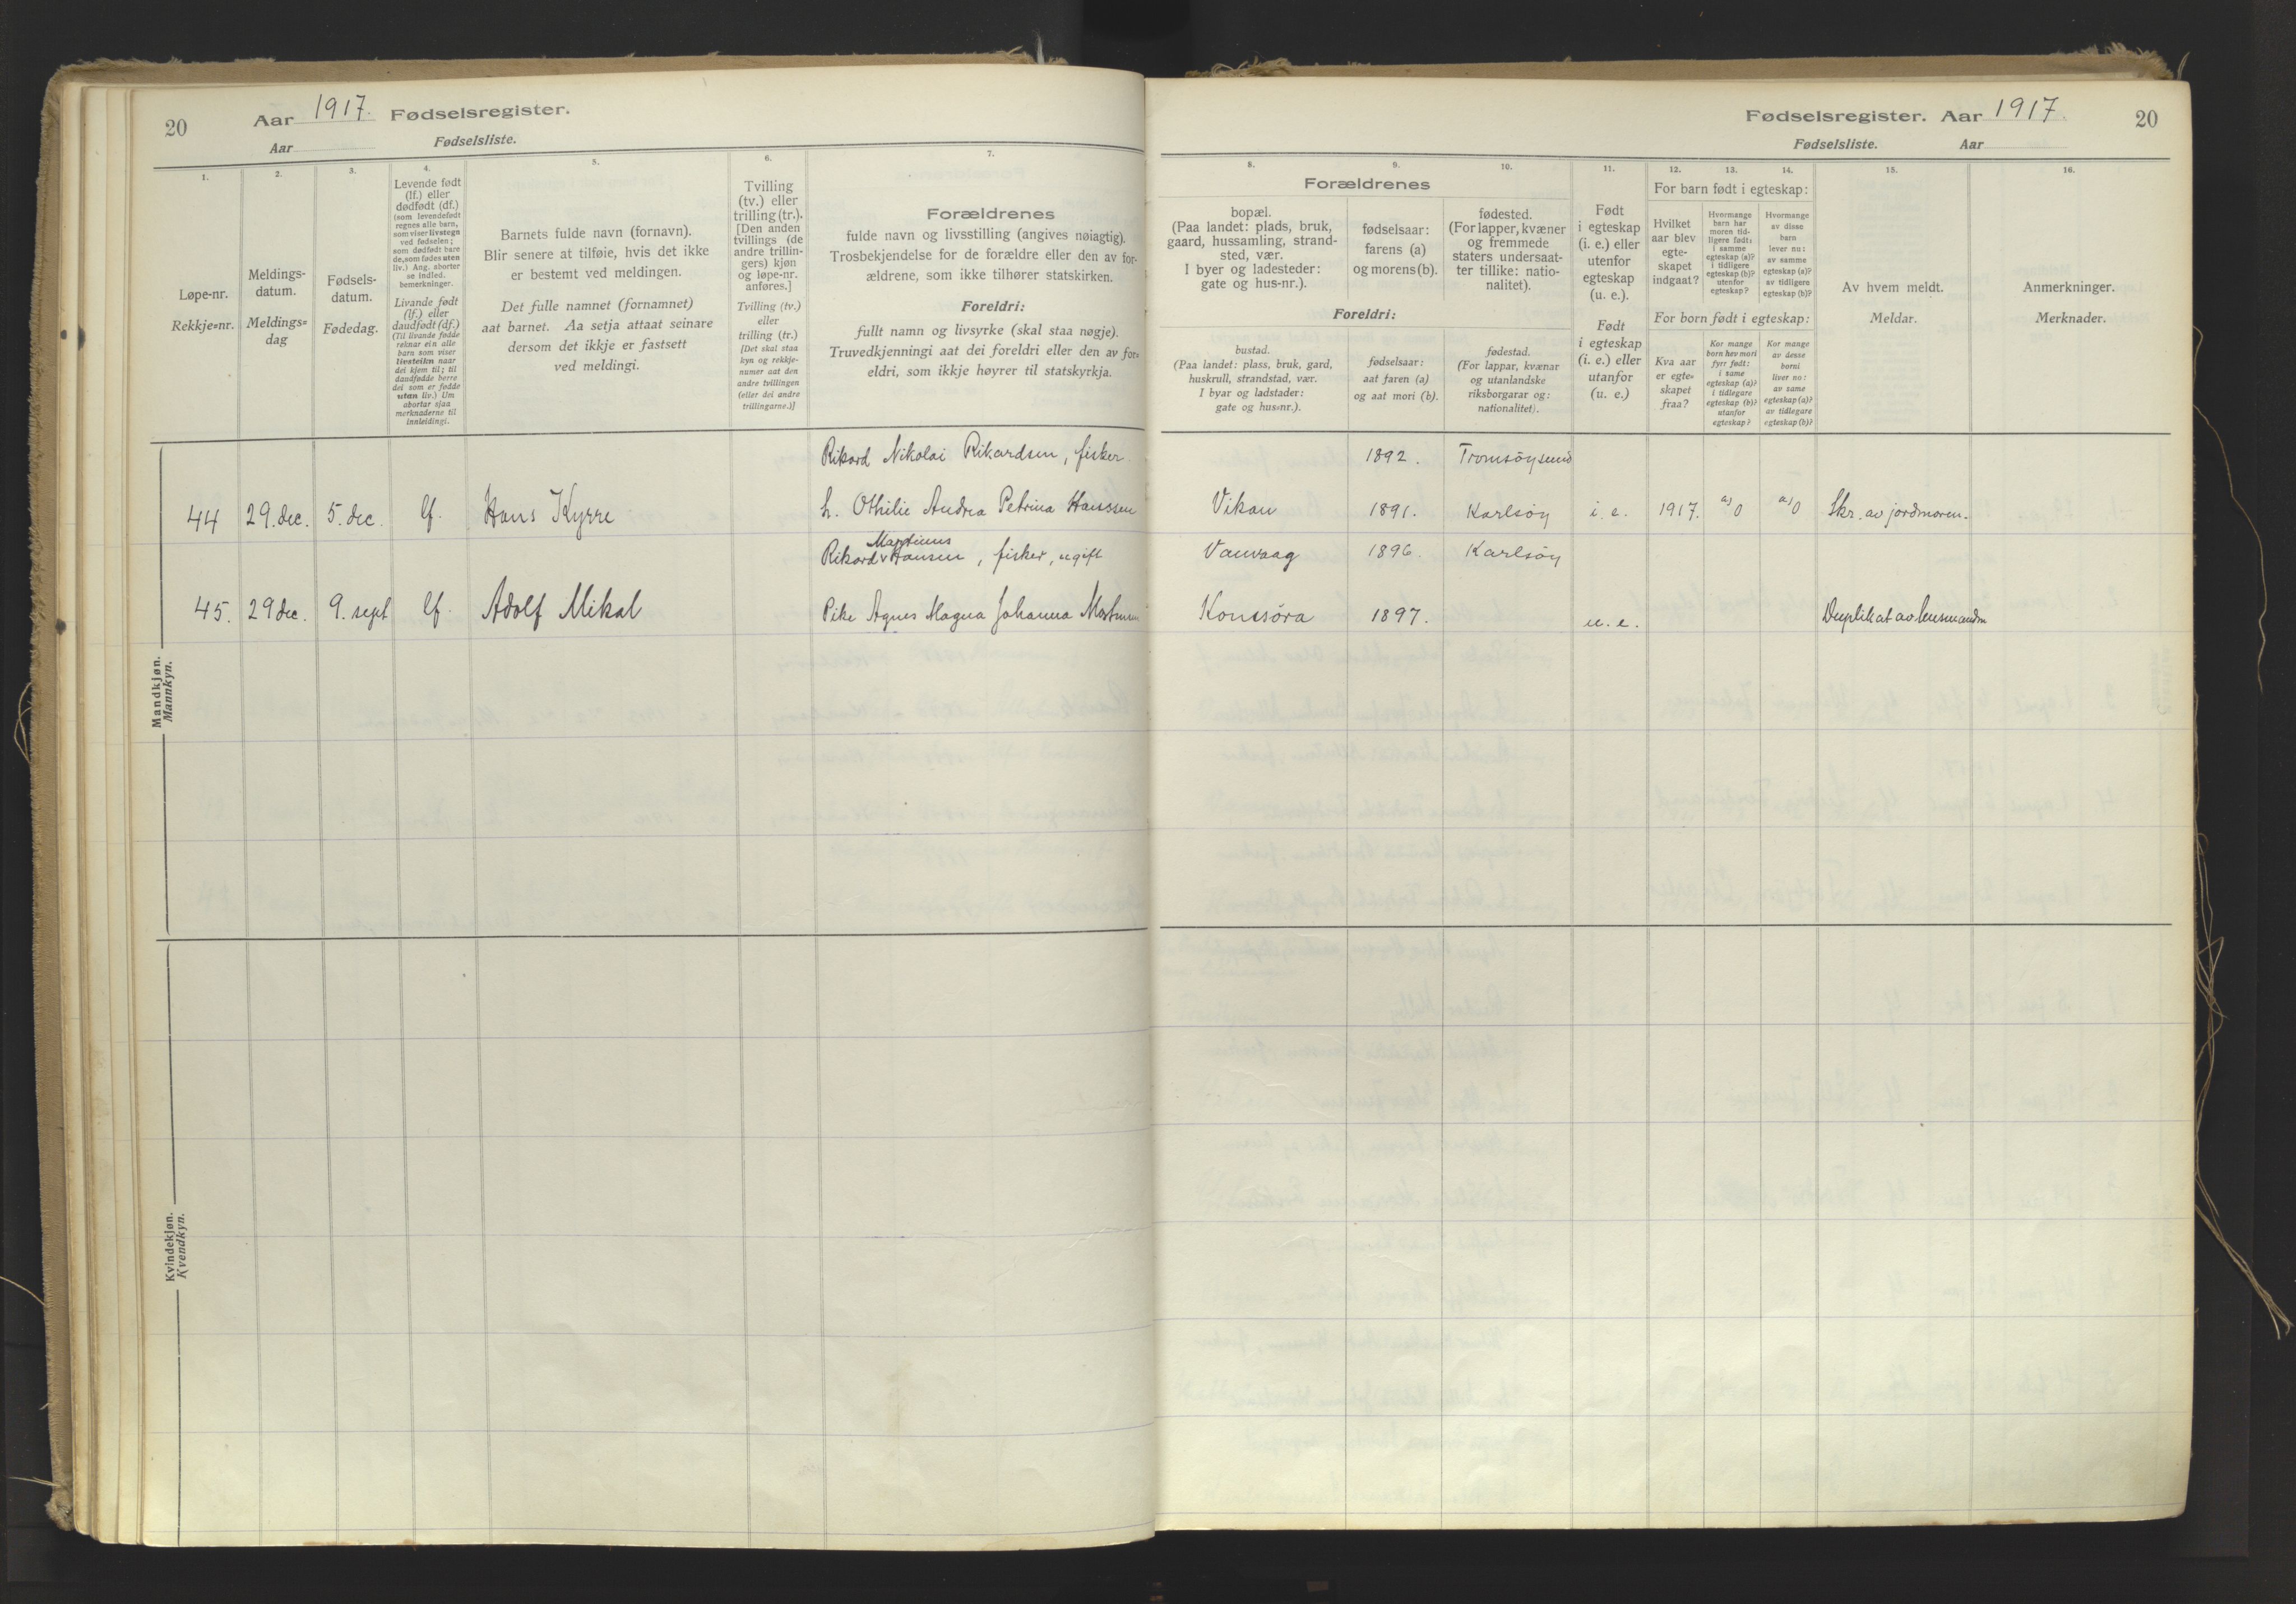 20
Aar 1917. Fødselsregister.
Aar
Fødselsliste.
1.
Løpe-nr.
Rekkje=nr.
2.
Meldings-
datum.
Meldings=
dag
3.
Fødsels-
datum.
Fødedag.
4.
Levende født
(lf.) eller
dødfødt (df.)
(som levendefødt
regnes alle barn,
som viser livstegn
ved fødselen;
som dødfødt bare
de, som fødes uten
liv.) Ang. aborter
se indled.
bemerkninger.
Livande født
(lf.) eller
daudfødt (df.)
(Til livande fødde
reknar ein alle
barn som viser
livsteikn naar
dei kjem til; til
daudfødde berre
dei som er fødde
utan liv.) Um
abortar sjaa
merknaderne til
innleidingi.
5.
Barnets fulde navn (fornavn).
Blir senere at tilføie, hvis det ikke
er bestemt ved meldingen.
Det fulle namnet (fornamnet)
aat barnet. Aa setja attaat seinare
dersom det ikkje er fastsett
ved meldingi.
6.
Tvilling
(tv.) eller
trilling (tr.).
[Den anden
tvillings (de
andre trillin-
gers) kjøn
og løpe-nr.
anføres.]
Tvilling (tv.)
eller
trilling (tr.)
[Det skal staa
kyn og rekkje-
numer aat den
andre tvillingen
(eller dei andre
trillingarne.)]
7.
Forældrenes
fulde navn og livsstilling (angives nøiagtig).
Trosbekjendelse for de forældre eller den av for-
ældrene, som ikke tilhører statskirken.
Foreldri:
fullt namn og livsyrke (skal staa nøgje).
Truvedkjenningi aat dei foreldri eller den av for=
eldri, som ikkje høyrer til statskyrkja.
Mandkjøn.
Mannkyn.
Rikard Nikolai Rikardsen, fisker
44 29. dec. 5. dec. lf. Hans Kyrre h. Othilie Andrea Petrina Hanssen
Martinus
Rikard Hansen, fisker, ugift
45. 29 dec. 9. sept lf. Adolf Mikal Pike Agnes Magna Johanna
Kvindekjøn.
Kvendkyn.
Fødselsregister. Aar 1917. 20
Fødselsliste. Aar
8.
9.
10.
Forældrenes
bopæl.
(Paa landet: plads, bruk,
gaard, hussamling, strand-
sted, vær.
I byer og ladesteder:
gate og hus-nr.).
fødselsaar:
farens (a)
og morens (b).
fødested.
(For lapper, kvæner
og fremmede
staters undersaat-
ter tillike: natio-
nalitet).
Foreldri:
bustad.
(Paa landet: plass, bruk, gard,
huskrull, strandstad, vær.
I byar og ladstader:
gate og hus=nr.).
fødselsaar:
aat faren (a)
og aat mori (b).
fødestad.
(For lappar, kvænar
og utanlandske
riksborgarar og:
nationalitet).
11.
Født
i egteskap
(i. e.) eller
utenfor
egteskap
(u. e.).
Født
i egteskap
(i. e.) eller
utanfor
(u. e.)
12.
13.
14.
For barn født i egteskap:
Hvilket
aar blev
egte-
skapet
indgaat?
Hvormange
barn har
moren tid-
ligere født:
i samme
egteskap (a)?
i tidligere
egteskap (b)?
utenfor
egteskap?
Hvormange
av disse
barn
lever nu:
av samme
egteskap (a)?
av tidligere
egteskap (b)?
For born født i egteskap:
Kva aar
er egte-
skapet
fraa?
Kor mange
born hev mori
fyrr født:
i same
egteskap (a)?
i tidlegare
egteskap (b)?
utanfor
egteskap?
Kor mange
av desse
borni
liver no:
av same
egteskap (a)?
av tidlegare
egteskap (b)?
15.
Av hvem meldt.
Meldar.
16.
Anmerkninger.
Merknader.
1892. Tromsøysund
Vikan 1891. Karlsøy i. e. 1917. a) 0 a) 0 Skr. av jordmoren.
Vanvaag 1896. Karlsøy
1897. u. e. Duplikat av lensmanden